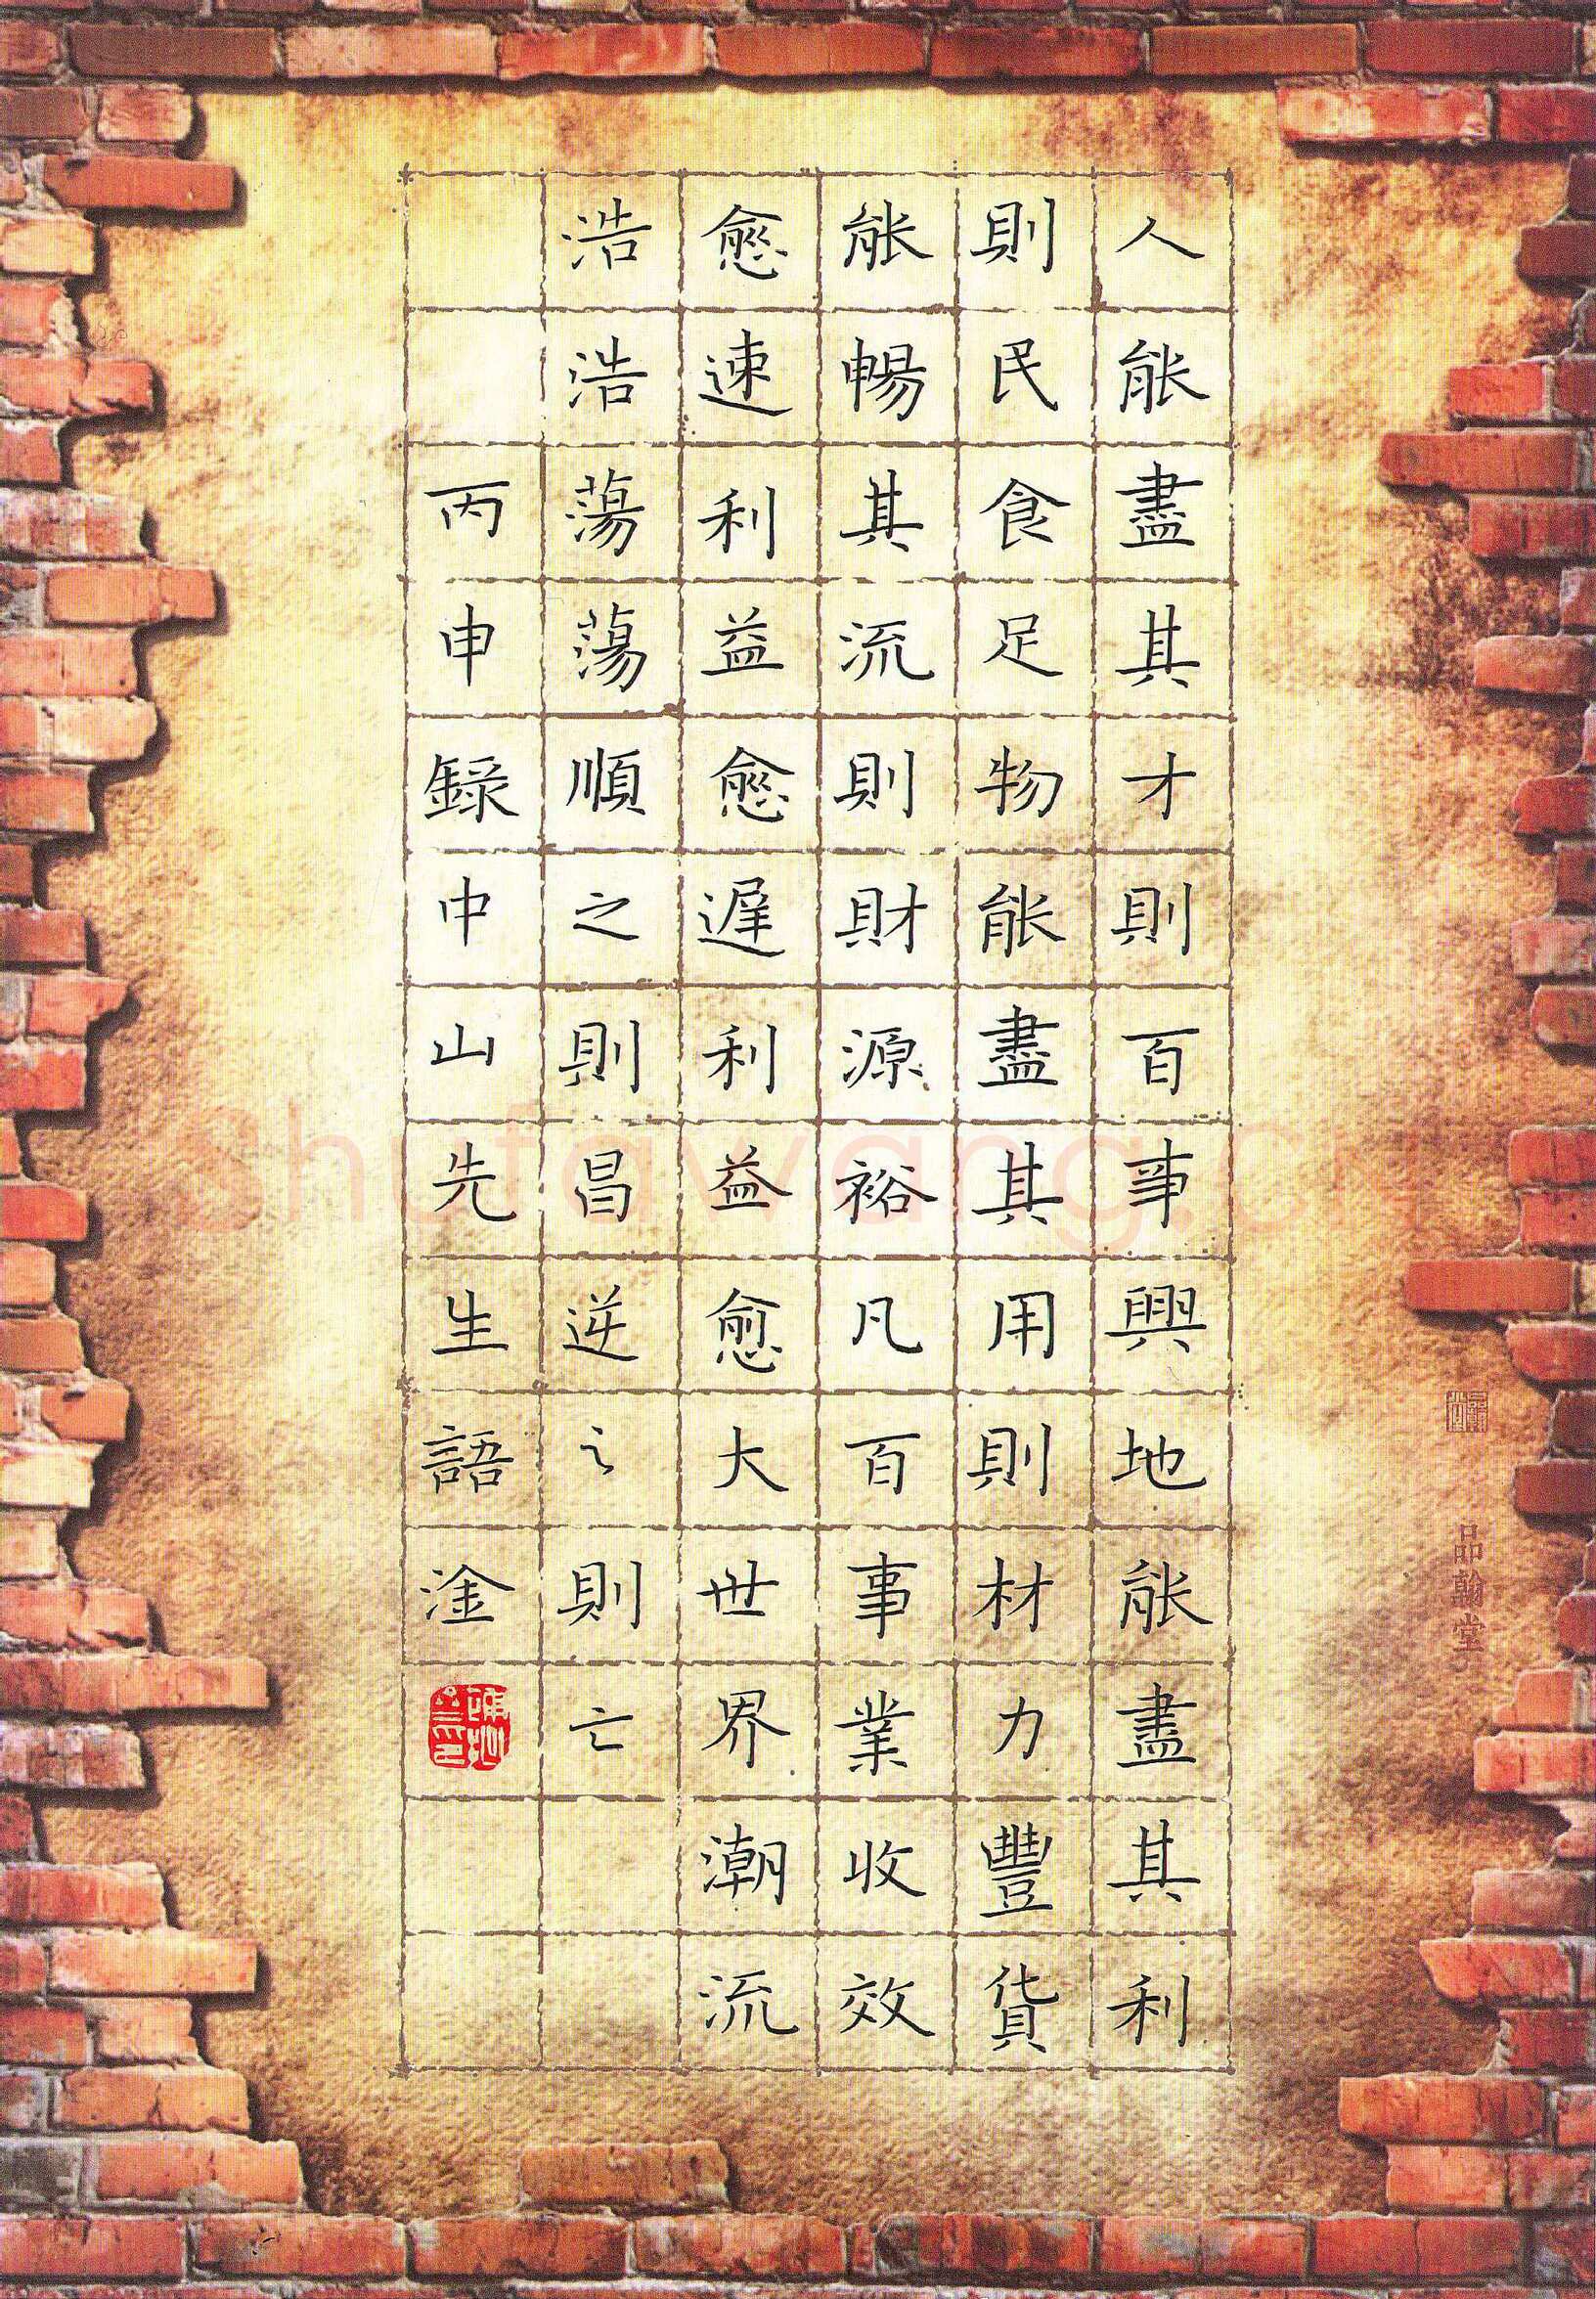 人能盡其才則百事興地能盡其利
則民食足物能盡其用則材力豐貨
能暢其流則財源裕凡百事業收效
愈速利益愈遲利益愈大世界潮流
浩浩蕩蕩順之則昌逆之則亡
丙申錄中山先生語淦
品翰堂
shufawang.cn